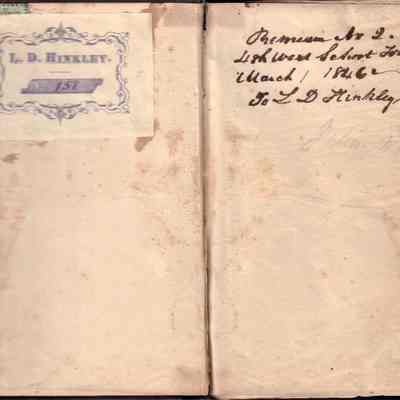 L. D. HINKLEY.
No. 151
Premium No 2.
4th Ward School
March 1846
To L D Hinkley